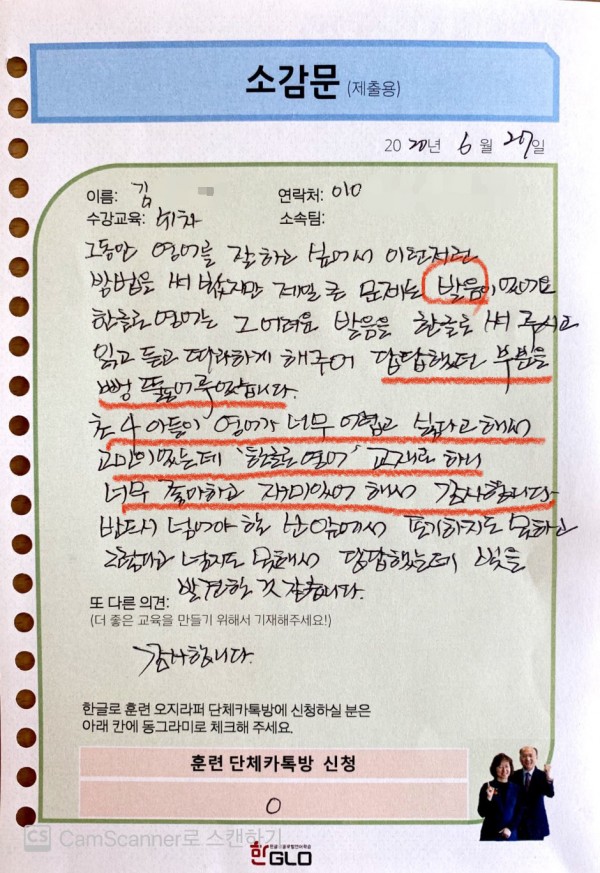 소감문 (제출용)
2020년 6월 27일
이름: 김
연락처: 010
수강교육: 1차
소속팀:
그동안 영어를 잘하고 싶어서 이런저런
방법을 써 봤지만 제일 큰 문제는 발음이었어요
한글로 영어는 그 어려운 발음을 한글로 써 주시고
읽고 듣고 따라하게 해주어 답답했던 부분을
뻥 뚫어 주었습니다.
초4 아들이 영어가 너무 어렵고 싫다고 해서
고민이었는데 '한글로 영어' 교재로 하니
너무 좋아하고 재미있어 해서 감사합니다
반드시 넘어야 할 산 앞에서 포기하지도 못하고
그렇다고 넘지도 못해서 답답했는데 빛을
발견한 것 같습니다.
또 다른 의견:
(더 좋은 교육을 만들기 위해서 기재해주세요!)
감사합니다.
한글로 훈련 오지라퍼 단체카톡방에 신청하실 분은
아래 칸에 동그라미로 체크해 주세요.
훈련 단체카톡방 신청
O
CS CamScanner로 스캔하기
한GLO